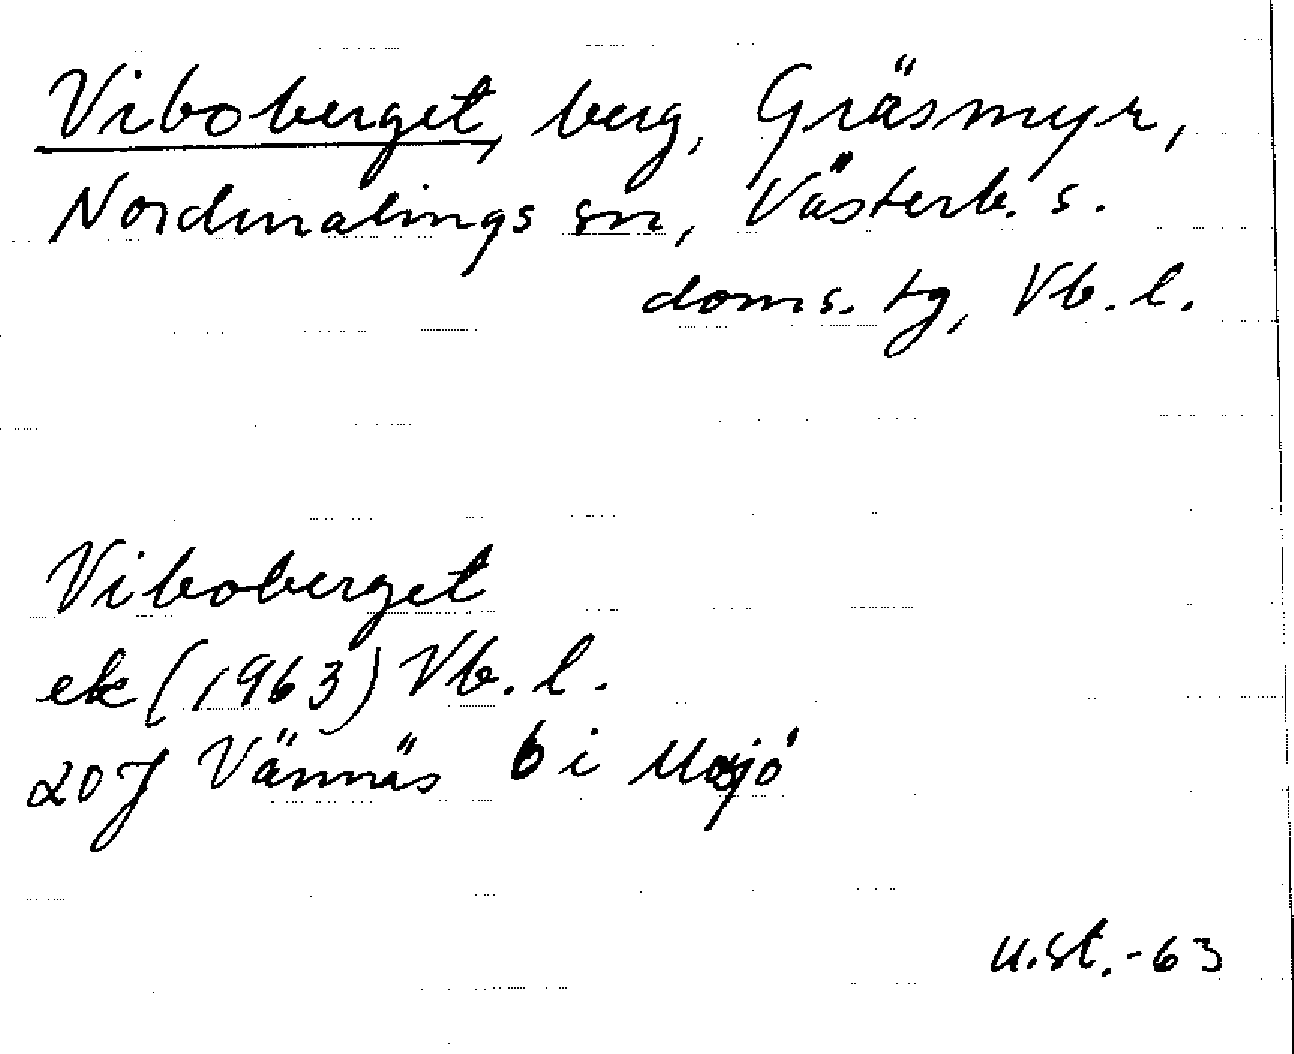 Viboberget, berg, Gräsmyr,
Nordmalings sn, Västerb. s.
doms. tg, Vb. l.
Viboberget
ek (1963) Vb. l.
20J Vännäs 6 i
u.st.-63